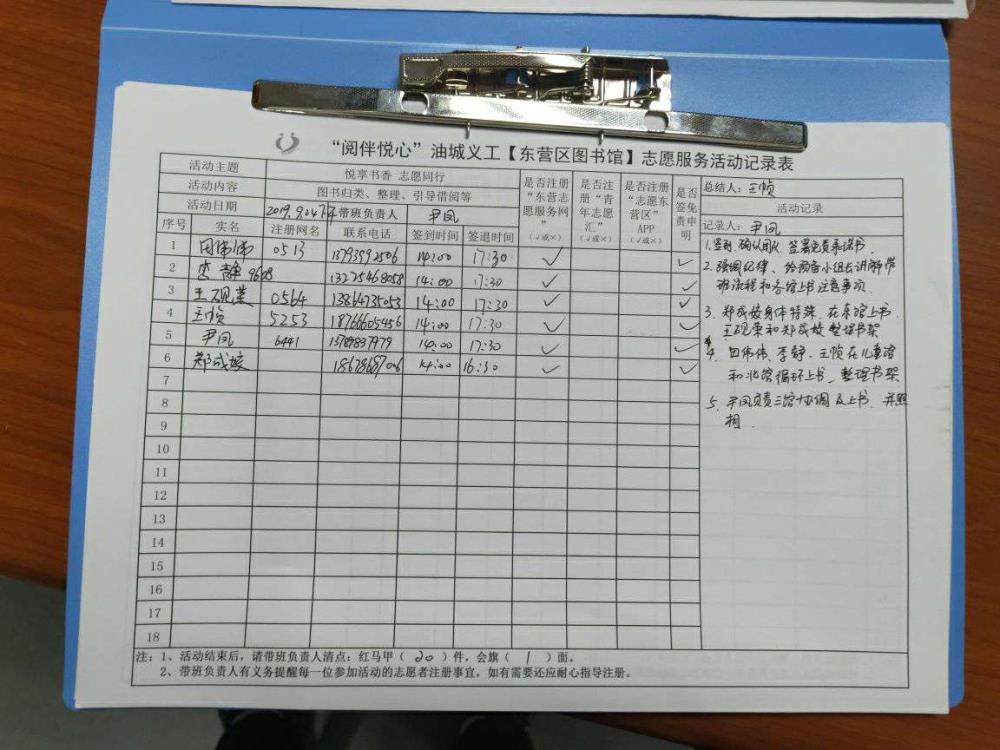 “阅伴悦心”油城义工【东营区图书馆】志愿服务活动记录表
活动主题 悦享书香 志愿同行
活动内容 图书归类、整理、引导借阅等
活动日期 2019.9.24下午 带班负责人 尹凤
序号 实名 注册网名 联系电话 签到时间 签退时间 是否注册“东营志愿服务网”（√或×） 是否注册“青年志愿汇”（√或×） 是否注册“志愿东营区”APP（√或×） 是否签免责申明
总结人：王帧
活动记录
记录人：尹凤
1 田伟伟 0513 13793992506 14:00 17:30 √ √
2 李静 9618 13225468058 14:00 17:30 √ √
3 王砚荣 0564 13864735053 14:00 17:30 √ √
4 王帧 5253 18766605456 14:00 17:30 √ √
5 尹凤 6441 13789837979 14:00 17:30 √ √
6 郑成姣 14:00 16:30 √ √
7
8
9
10
11
12
13
14
15
16
17
18
1.签到、确认团队、签署免责承诺书.
2.强调纪律、给预备小组长讲解带
班流程和各馆上书注意事项.
3.郑成姣身体特殊.在本馆上书.
王砚荣和郑成姣整理书架
4.田伟伟、李静、王帧在儿童馆
和北馆循环上书、整理书架
5.尹凤负责三馆协调及上书.并照
相.
注：1、活动结束后，请带班负责人清点：红马甲（20）件，会旗（1）面。
2、带班负责人有义务提醒每一位参加活动的志愿者注册事宜，如有需要还应耐心指导注册。